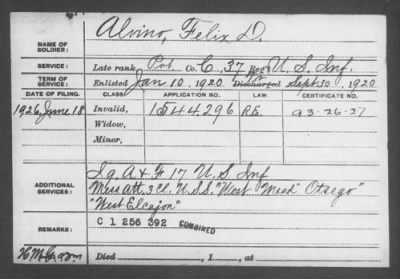 Alvino, Felix D.
NAME OF SOLDIER:
SERVICE: Late rank, Pvt. Co. C, 37 Reg't U. S. Inf.
TERM OF SERVICE: Enlisted Jan. 10, 1920 Discharged Sept. 30, 1920
DATE OF FILING. CLASS. APPLICATION NO. LAW. CERTIFICATE NO.
1926, June 18 Invalid, 1544296
Widow,
Minor,
ADDITIONAL SERVICES:
17 U. S. Inf
Mess Att. 3 Cl. U.S.S. "West Mead" Otsego"
"West Elcajon"
C 1 256 392 COMBINED
Died , 1 , at